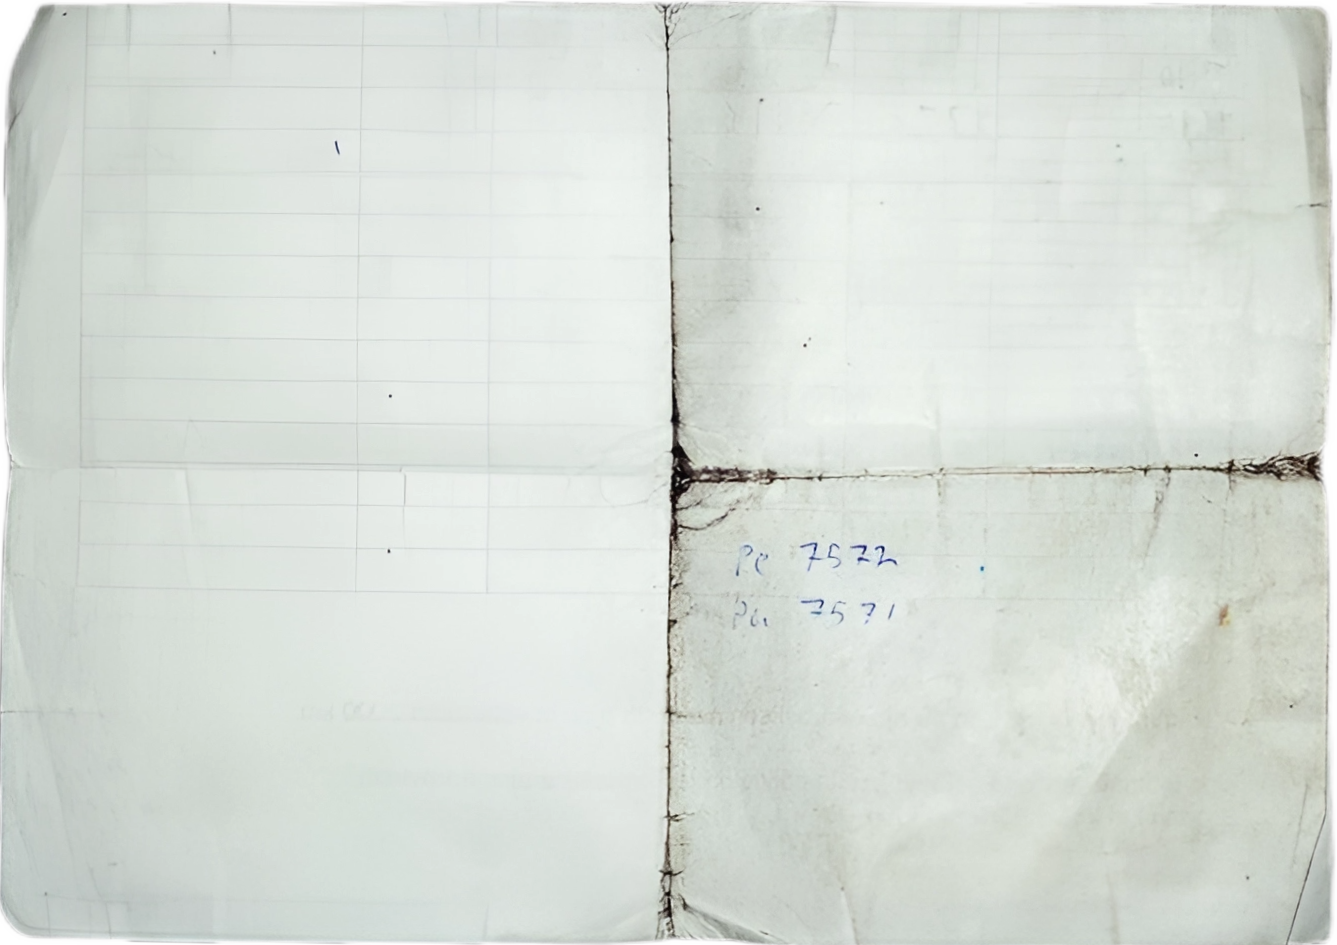 Pe 7572
Pu 7571